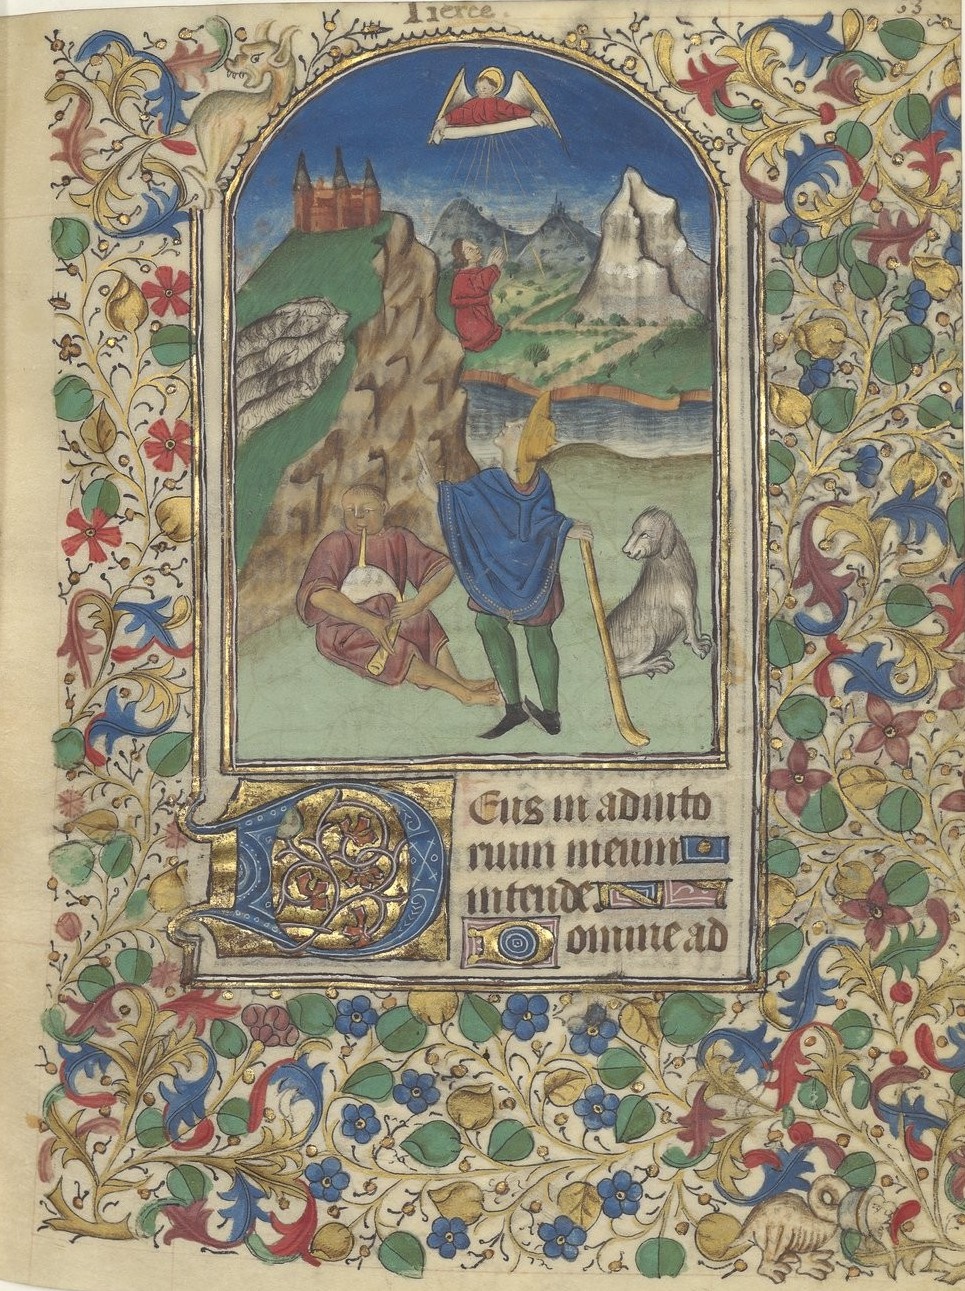 Tierce.
55
Deus in adiuto
rium meum
intende.
Domine ad